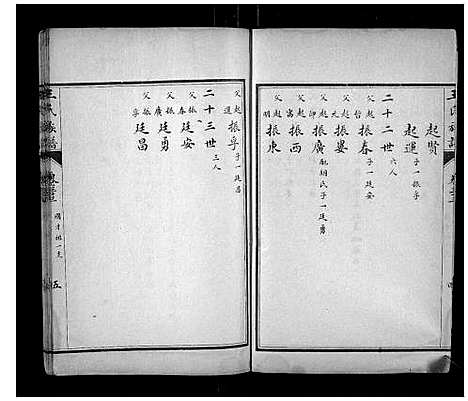 王氏族譜
起賢
起運 子一振孚
二十二世 六人
父起哲 振春 子一廷安
父起元 振晏
父起 振廣 配胡氏子一廷勇
父起 振西
父起明 振東
父起運 振孚 子一廷昌
二十三世 三人
父振春 廷安
父振廣 廷勇
父振孚 廷昌
王氏族譜
五